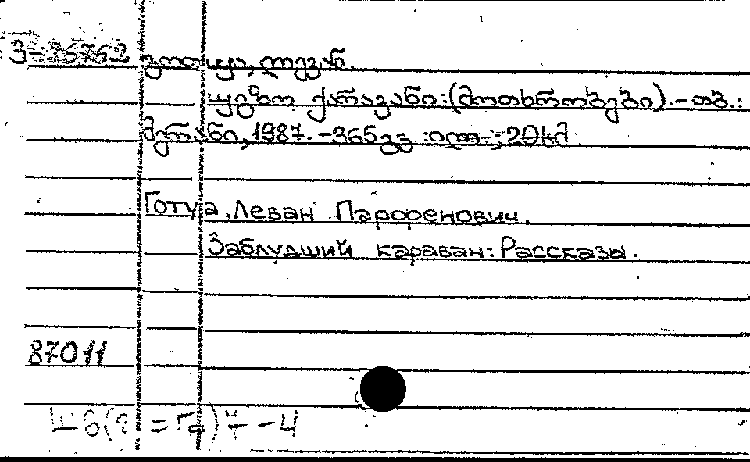 გოთუა, ლევან.
უგზო ქარავანი: (მოთხრობები). - თბ.:
მერანი, 1987. - 365 გვ. : ილ. ; 20 სმ
Готуа, Леван Парфенович.
Заблудший караван: Рассказы.
87011